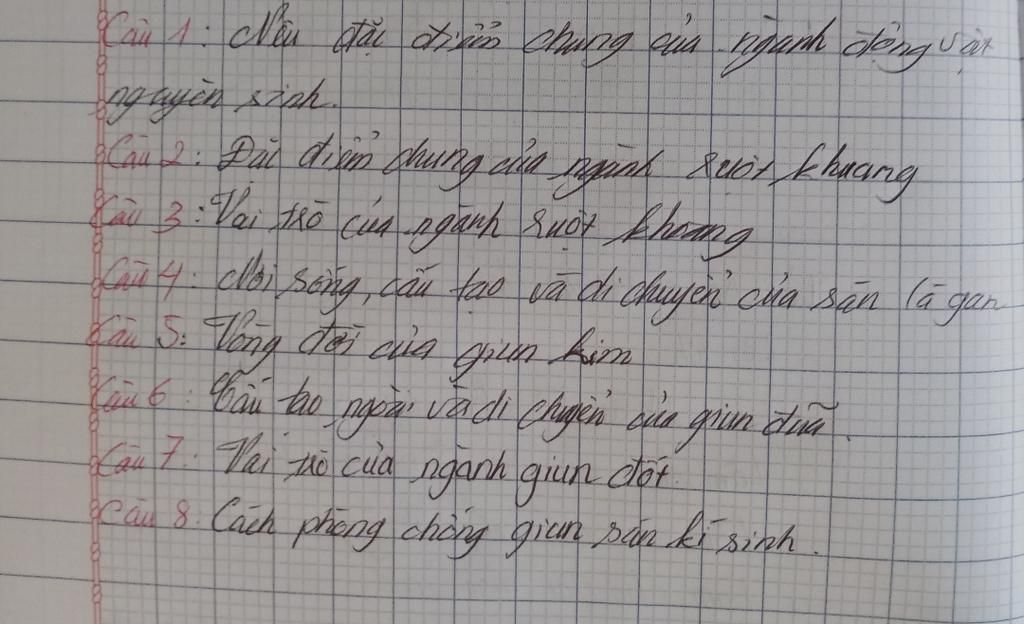 Câu 1: Nêu đặc điểm chung của ngành động vật
nguyên sinh.
Câu 2: Đặc điểm chung của ngành ruột khoang
Câu 3: Vai trò của ngành ruột khoang
Câu 4: Nơi sống, cấu tạo và di chuyển của sán lá gan
Câu 5: Vòng đời của giun kim
Câu 6: Cấu tạo ngoài và di chuyển của giun đũa.
Câu 7: Vai trò của ngành giun đốt.
Câu 8: Cách phòng chống giun sán kí sinh.